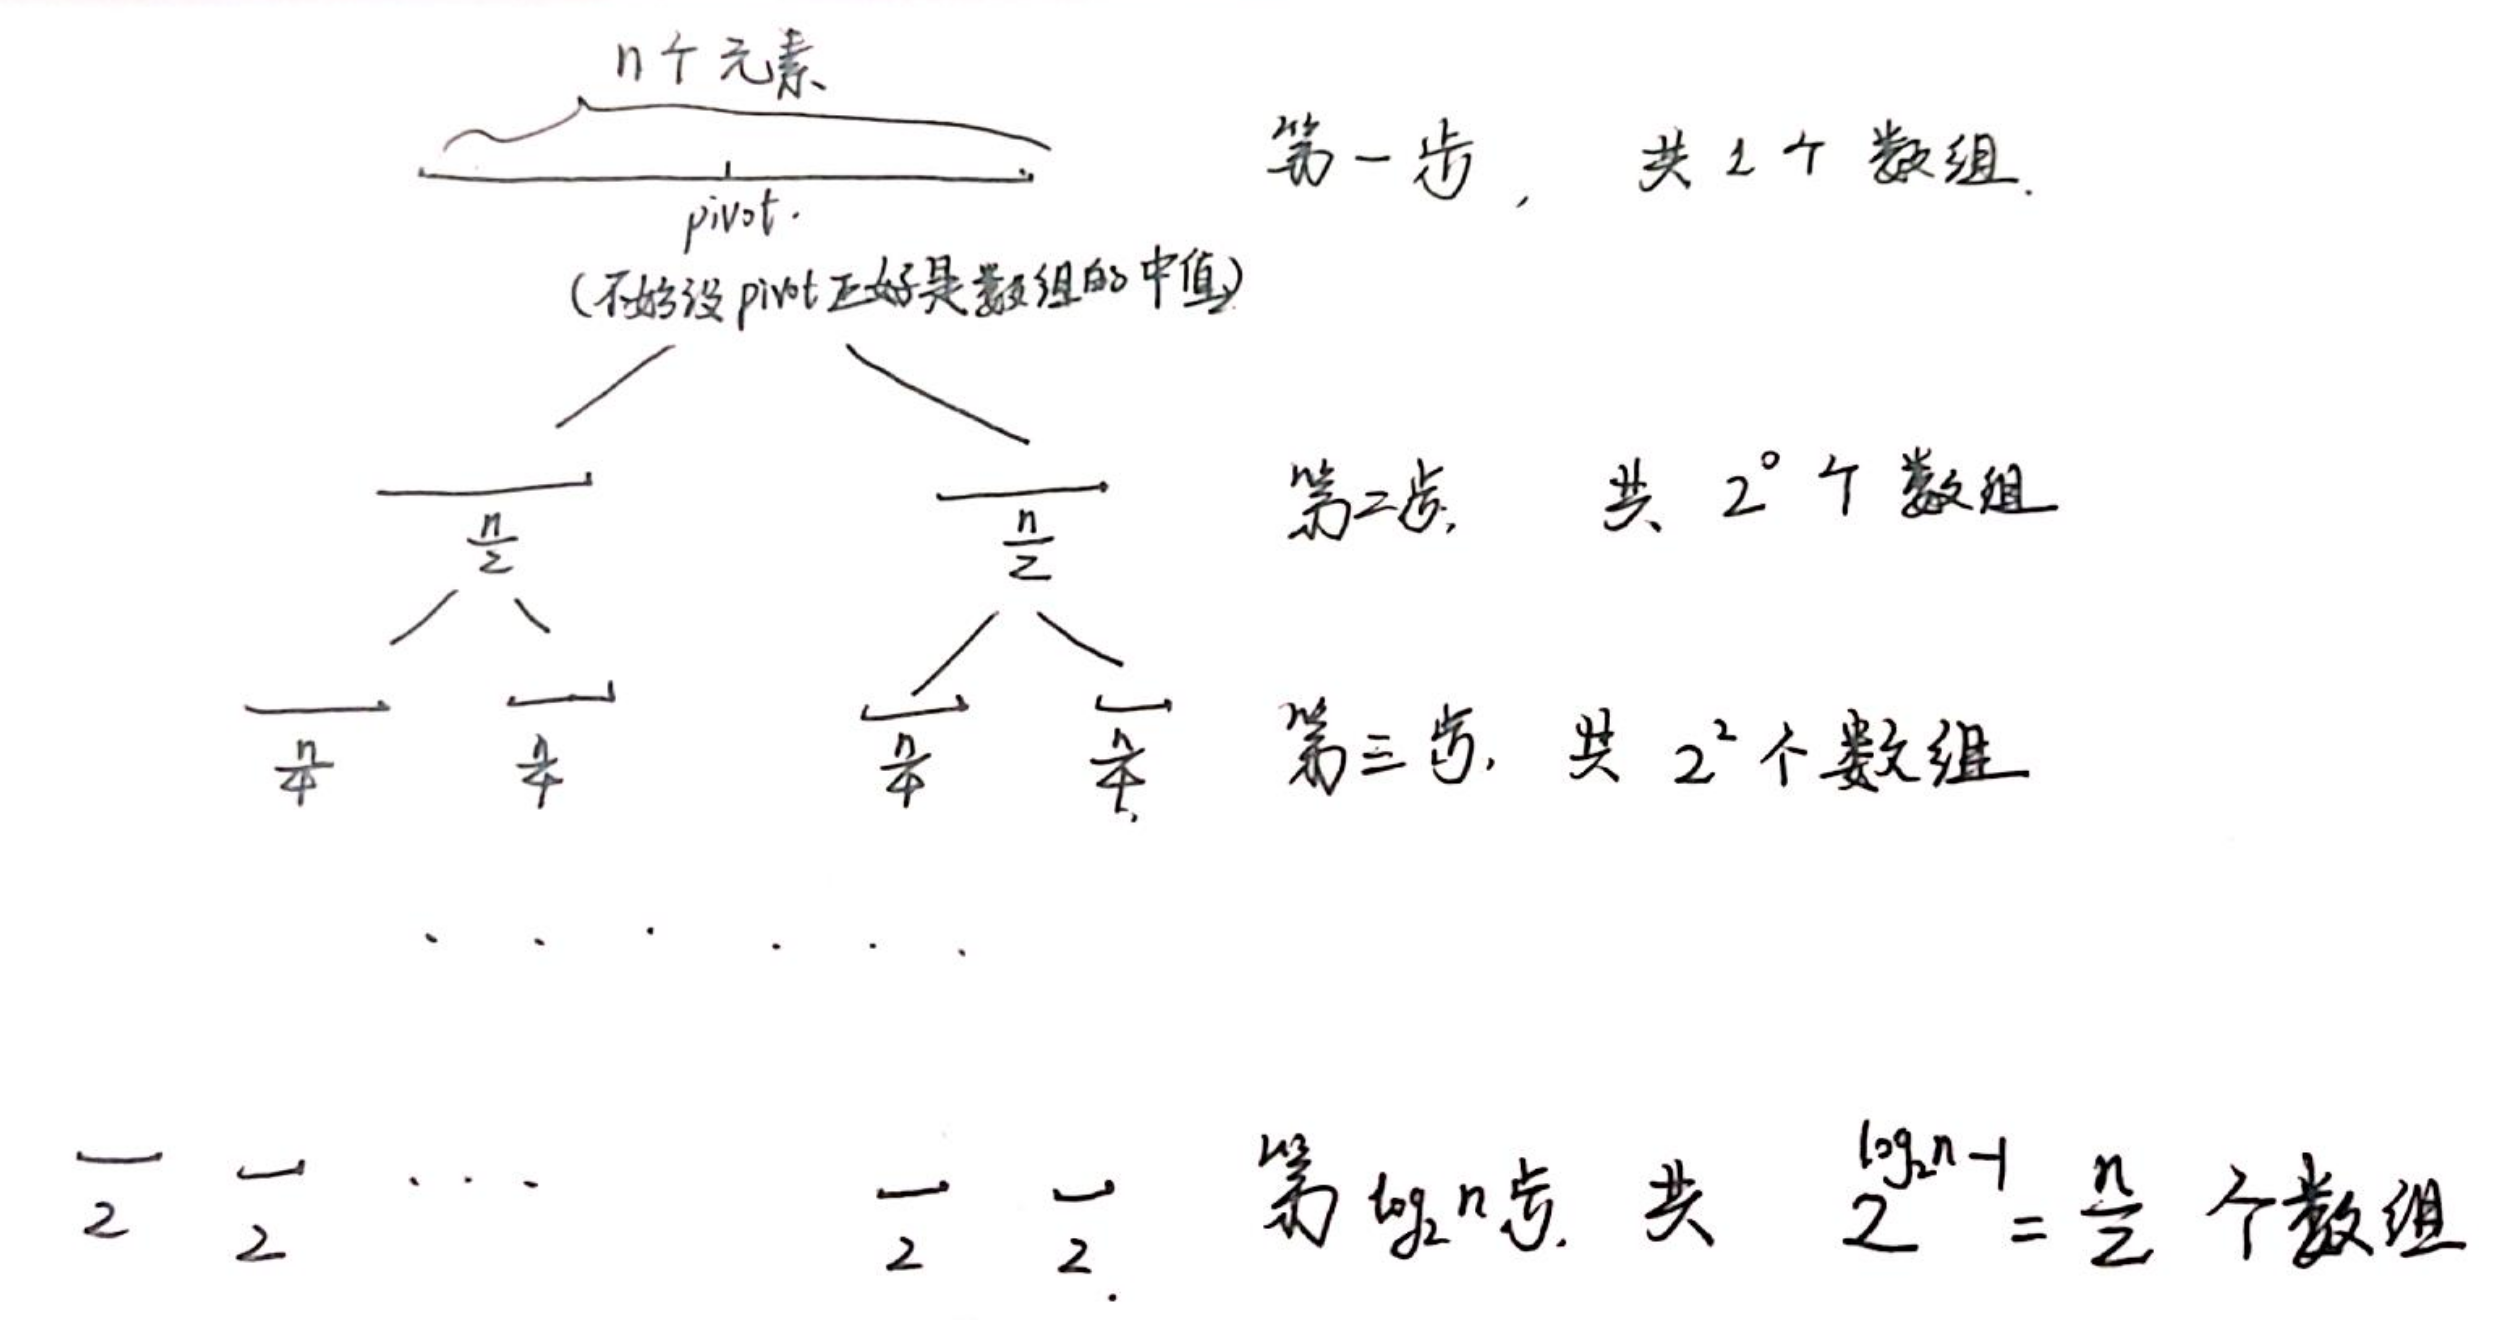 n个元素
第一步, 共1个数组.
pivot.
(不妨设pivot正好是数组的中值)
n/2 n/2 第二步, 共 2^0 个数组
n/4 n/4 n/4 n/4 第三步, 共 2^2 个数组
. . . . . .
2 2 ... 2 2. 第 log₂n 步. 共 2^(log₂n-1) = n/2 个数组